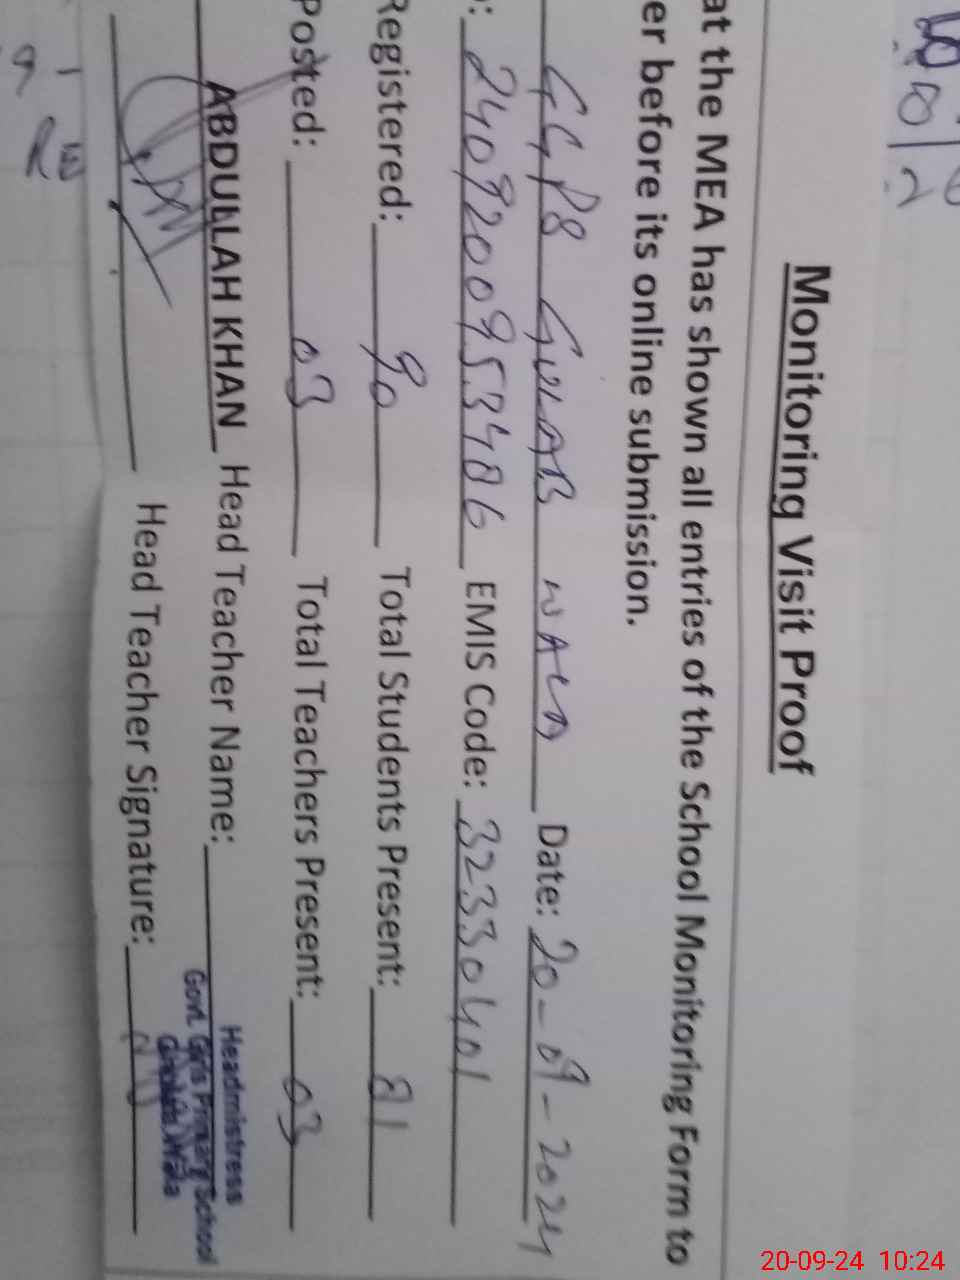 Monitoring Visit Proof
at the MEA has shown all entries of the School Monitoring Form to
er before its online submission.
GGPS GULAB WALA Date: 20-09-2024
: 240920095 3486 EMIS Code: 32330401
Registered: 90 Total Students Present: 81
Posted: 03 Total Teachers Present: 03
ABDULLAH KHAN Head Teacher Name:
Headmistress
Govt. Girls Primary School
Wala
Head Teacher Signature:
20-09-24 10:24